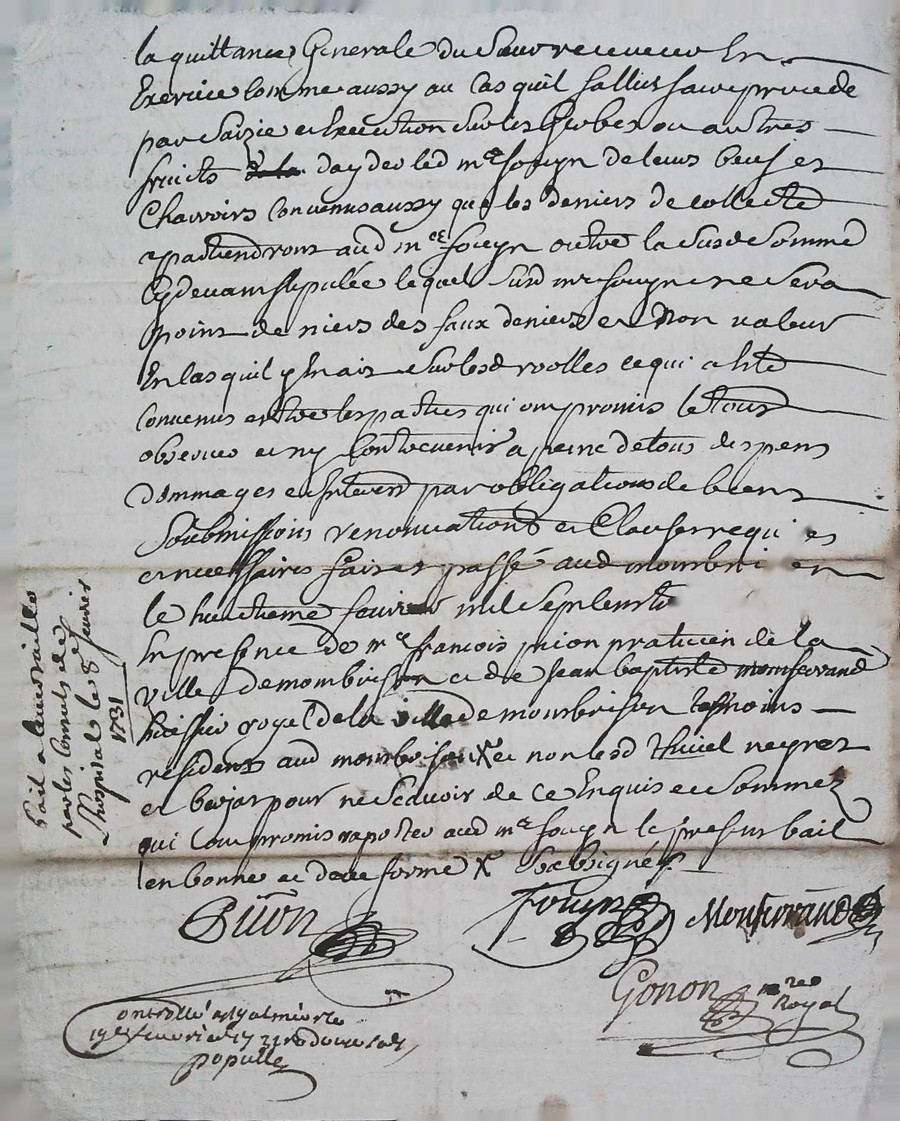 la quittance Generale du Sieur receveur En
Exercice Comme aussy au Cas quil fallut faire procede
par Saizie et Execution Sur les Gerbes ou autres
fruits dela dayder led mre fouyn de leurs beufs et
Charroirs Convenus aussy que les deniers de collecte
apartiendront aud mre fouyn outre la Susde Somme
Cydevant stipulée lequel Surd mre fouyn ne Sera
point de niers des faux deniers et Non valeur
En Cas quil y En ait Sur lesd roolles ce qui a Eté
Convenus entre les parties qui ont promis le tout
observer et ny Contrevenir a peine de tous despens
dommages et Interest par obligations de biens
Soubmissions renonciations et Clauses requises
et necessaires fait et passé aud mombrison
le huictieme fevrier mil Sept Cents
En presence de mre francois puion praticien de la
ville demombrison et de Jean baptiste monferrand
huissier royal de la ville de mombrison tesmoins
residents aud mombrison X et non lesd thivel neyret
et bajar pour ne Scavoir de ce Enquis et Sommez
qui Com promis raporter aud mre fouyn le present bail
en bonne et deue forme X Soubsignés
Puion
fouyn
Monferrand
Gonon
nre
Royal
ontrollé a Sgalmier le
fevrier
populle
bail a
par les Consuls de
Lhospial le 8e fevrier
1731